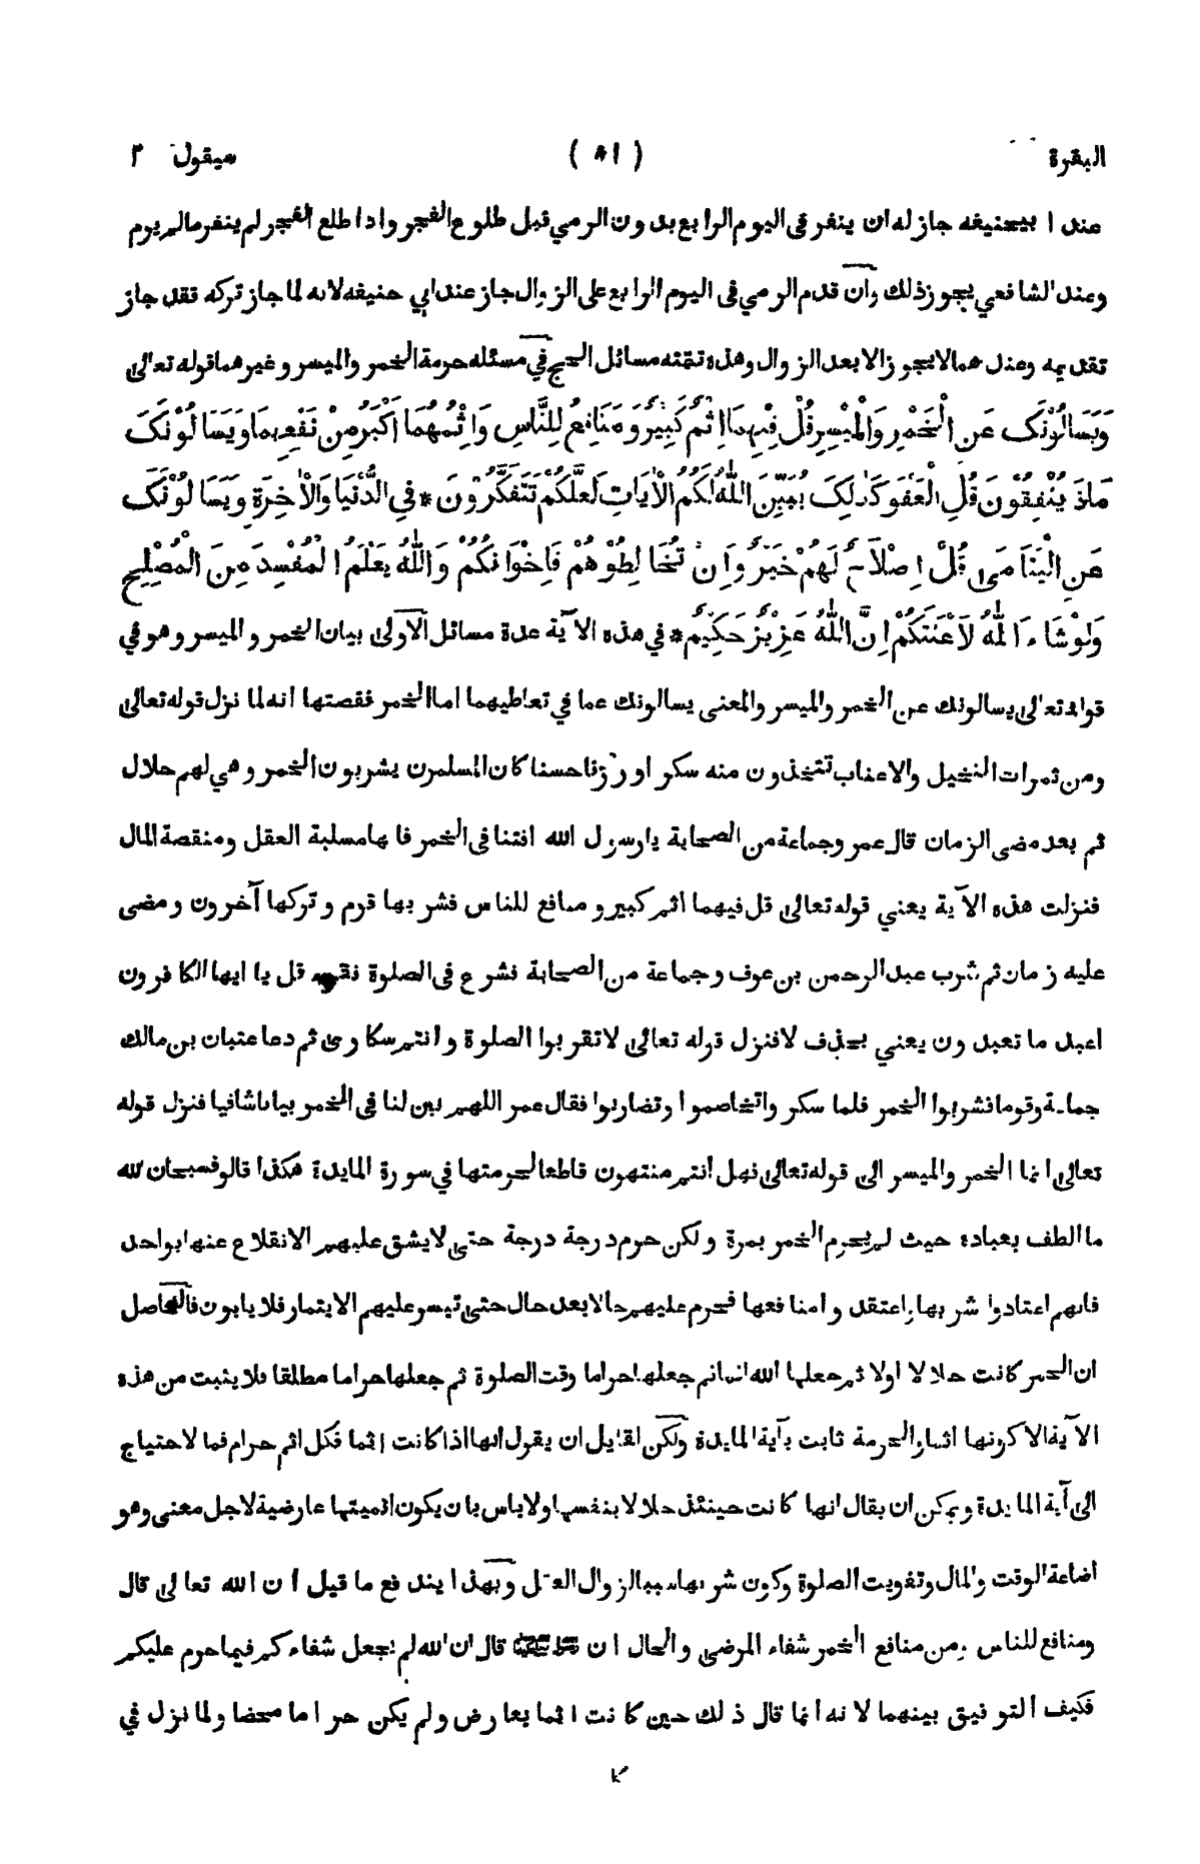 البقرة ( ٨١ ) سيقول ٢
عند ابيحنيفه جاز له ان ينفر فى اليوم الرابع بدون الرمي قبل طلوع الفجر واذا طلع الفجر لم ينفر مالم يرم
وعند الشافعي يجوز ذلك وان قدم الرمي فى اليوم الرابع على الزوال جاز عند ابي حنيفه لانه لما جاز تركه فقد جاز
تقديمه وعندهما لا يجوز الا بعد الزوال وهذه تتمه مسائل الحج في مسئله حرمة الخمر والميسر وغيرهما قوله تعالى
وَيَسَالُوْنَكَ عَنِ الْخَمْرِ وَالْمَيْسِرِ قُلْ فِيْهِمَا اِثْمٌ كَبِيْرٌ وَمَنَافِعُ لِلنَّاسِ وَاِثْمُهُمَا اَكْبَرُ مِنْ نَفْعِهِمَا وَيَسَالُوْنَكَ
مَاذَ يُنْفِقُوْنَ قُلِ الْعَفْوَ كَذٰلِكَ يُبَيِّنُ اللّٰهُ لَكُمُ الْاٰيَاتِ لَعَلَّكُمْ تَتَفَكَّرُوْنَ * فِي الدُّنْيَا وَالْاٰخِرَةِ وَيَسَالُوْنَكَ
عَنِ الْيَتَامَى قُلْ اِصْلَاحٌ لَهُمْ خَيْرٌ وَاِنْ تُخَالِطُوْهُمْ فَاِخْوَانُكُمْ وَاللّٰهُ يَعْلَمُ الْمُفْسِدَ مِنَ الْمُصْلِحِ
وَلَوْ شَاءَ اللّٰهُ لَاَعْنَتَكُمْ اِنَّ اللّٰهَ عَزِيْزٌ حَكِيْمٌ * في هذه الآية عدة مسائل الاولى بيان الخمر والميسر وهو في
قوله تعالى يسالونك عن الخمر والميسر والمعنى يسالونك عما في تعاطيهما اما الخمر فقصتها انه لما نزل قوله تعالى
ومن ثمرات النخيل والاعناب تتخذون منه سكرا ورزقا حسنا كان المسلمون يشربون الخمر وهي لهم حلال
ثم بعد مضى الزمان قال عمر وجماعة من الصحابة يا رسول الله افتنا فى الخمر فانها مسلبة العقل ومنقصة المال
فنزلت هذه الآية يعني قوله تعالى قل فيهما اثم كبير ومنافع للناس فشربها قوم وتركها آخرون ومضى
عليه زمان ثم شرب عبد الرحمن بن عوف وجماعة من الصحابة فشرع فى الصلوة فقرء قل يا ايها الكافرون
اعبد ما تعبدون يعني بحذف لا فنزل قوله تعالى لا تقربوا الصلوة وانتم سكارى ثم دعا عتبان بن مالك
جماعة وقوما فشربوا الخمر فلما سكر واتخاصموا وتضاربوا فقال عمر اللهم بين لنا فى الخمر بيانا شافيا فنزل قوله
تعالى انما الخمر والميسر الى قوله تعالى فهل انتم منتهون قاطعا لحرمتها في سورة المايدة هكذا قالو فسبحان لله
ما الطف بعباده حيث لم يحرم الخمر بمرة ولكن حرم درجة درجة حتى لا يشق عليهم الانقلاع عنها بواحد
فانهم اعتادوا شربها واعتقدوا منافعها فحرم عليهم حالا بعد حال حتى تيسر عليهم الايتمار فلا يابون فالحاصل
ان الخمر كانت حلالا اولا ثم جعلها الله اثما ثم جعلها حراما وقت الصلوة ثم جعلها حراما مطلقا فلا يثبت من هذه
الآية الا كونها اثما والحرمة ثابت بآية المايدة ولكن لقايل ان يقول انها اذا كانت اثما فكل اثم حرام فما لاحتياج
الى آية المايدة ويمكن ان يقال انها كانت حينئذ حلالا بنفسها ولا باس بان يكون اثميتها عارضية لاجل معنى وهو
اضاعة الوقت والمال وتفويت الصلوة وكون شربها سببا لزوال العقل وبهذا يندفع ما قيل ان الله تعالى قال
ومنافع للناس ومن منافع الخمر شفاء المرضى والحال ان قال ان الله لم يجعل شفاءكم فيما حرم عليكم
فكيف التوفيق بينهما لانه انما قال ذلك حين كانت اثما بعارض ولم يكن حراما محضا ولما نزل في